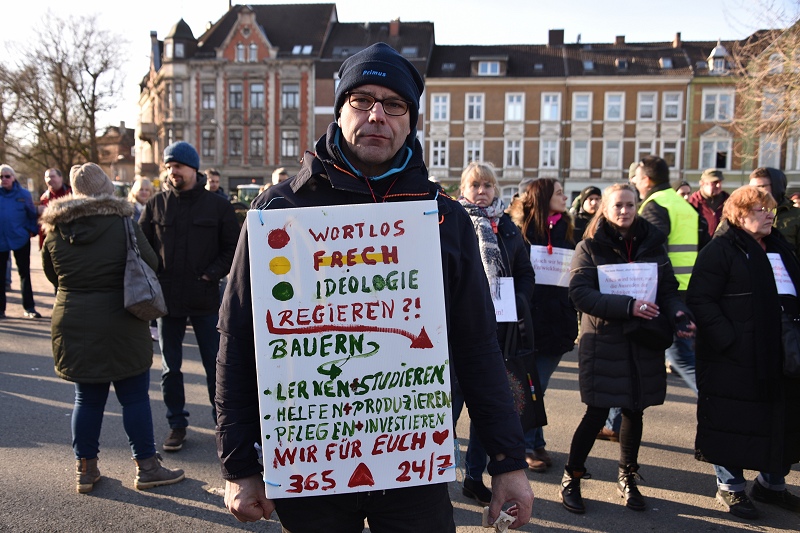 primus
WORTLOS
FRECH
IDEOLOGIE
REGIEREN?!
BAUERN
· LERNEN + STUDIEREN
· HELFEN + PRODUZIEREN
· PFLEGEN + INVESTIEREN
WIR FÜR EUCH
365 24/7